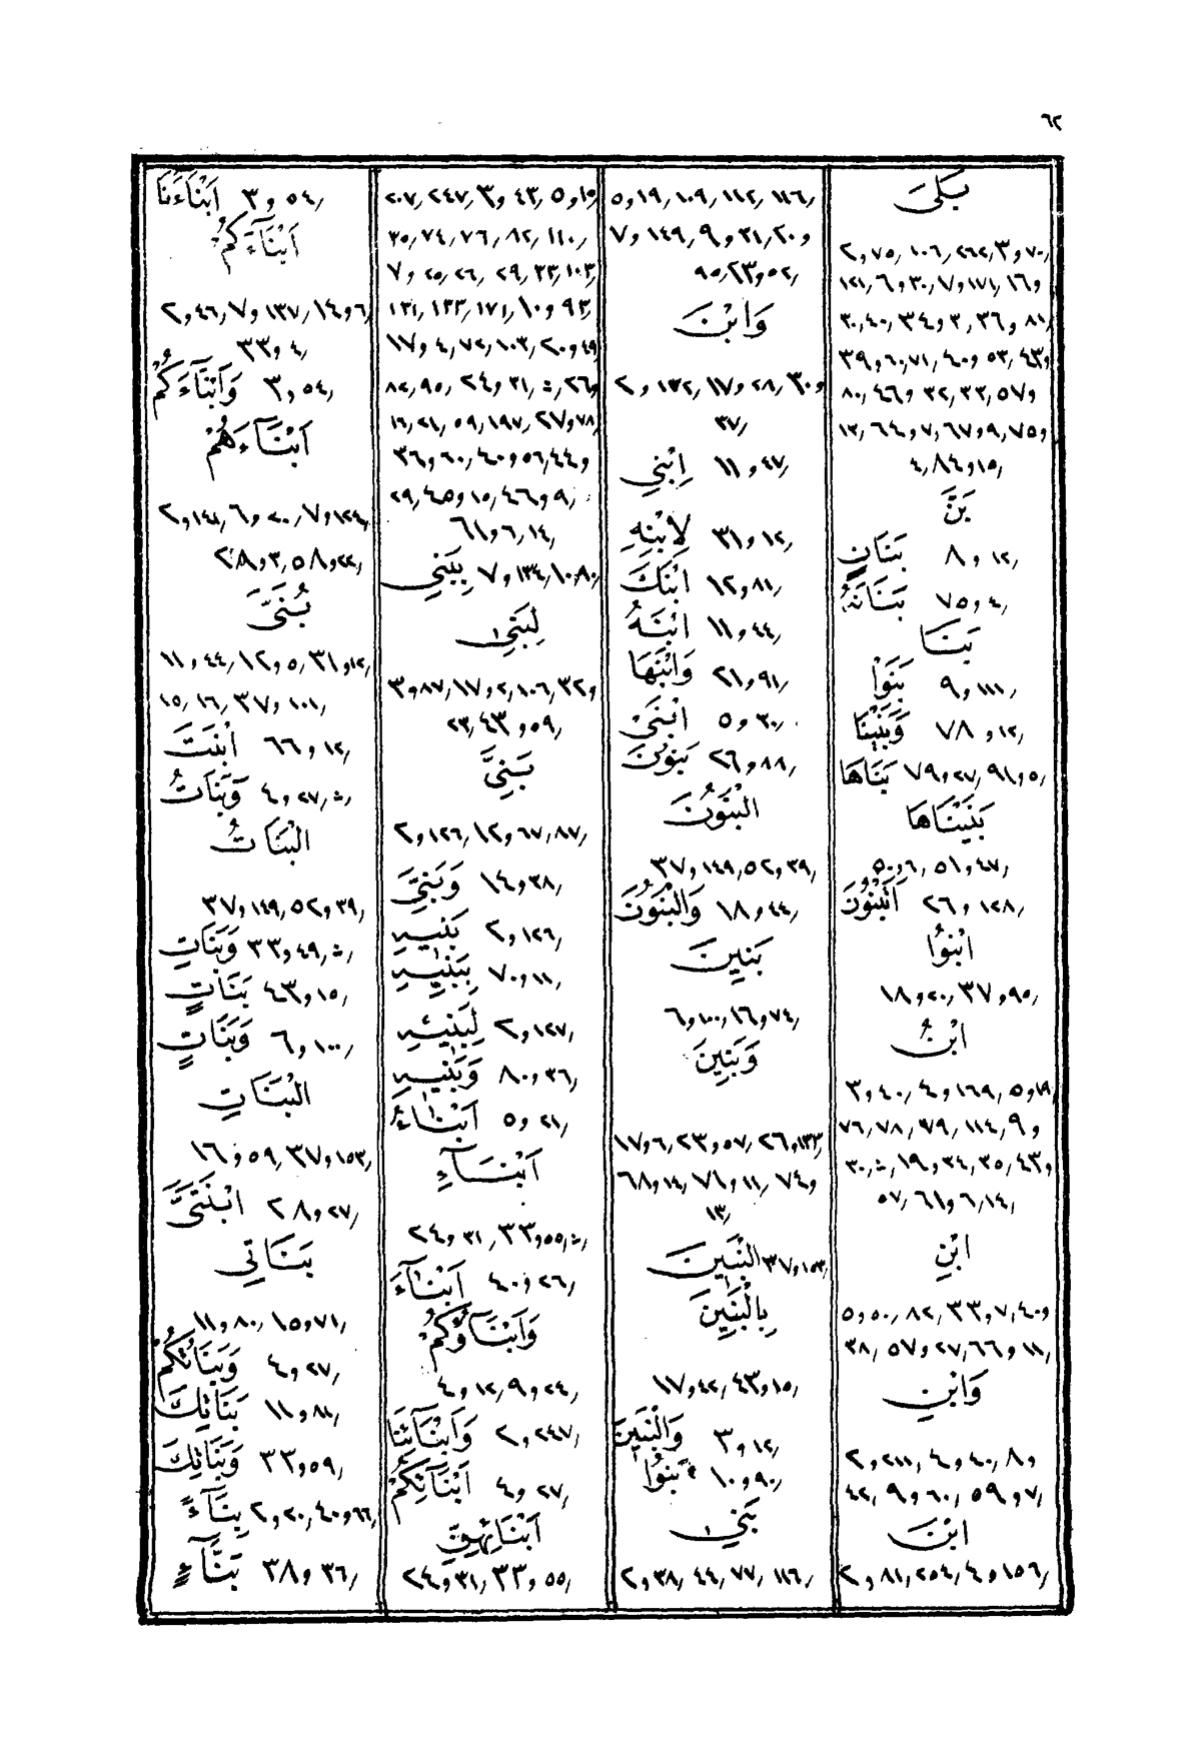 ٦٢
بَلَىٰ
٢و٧٥٫ ١٠٦٫ ٢٦٢٫ ٣و٧٠٫
١٢١٫ ٦و٣٠٫ ٧و١٧١٫ و١٦
٣٠٫ ٤٠٫ ٣٤و٣٫ ٣٦و٨١٫
٣٩و٦٠٫ ٧١٫ ٤٠و٥٣٫ و٤٣٫
٨٠٫ و٤٦ ٣٢٫ ٣٣٫ و٥٧
١٣٫ ٦٤و٧٫ ٦٧و٩٫ و٧٥
٤٫ ٨٤و١٥٫
بَنَّ
بَنَانٍ ٨ و١٢٫
بَنَانَهُ ٧٥و٤٫
بَنَا
بَنَوْا ٩ و١١١٫
وَبَنَيْنَا ٧٨ و١٢٫
بَنَاهَا ٧٩و٢٧٫ ٩١و٥٫
بَنَيْنَاهَا
٥٠و٦٫ ٥١و٤٧٫
أَتَبْنُونَ ٢٦ و١٢٨٫
ابْنُوا
١٨و٢٠٫ ٣٧و٩٥٫
ابْنُ
٣و٤٠٫ ٤و١٦٩٫ ٥و١٩٫
٧٦٫ ٧٨٫ ٧٩٫ ١١٤٫ و٩
٣٠٫ ١٩و٣٤٫ ٣٥٫ و٤٣
٥٧٫ ٦١و٦٫ ١٤٫
ابْنِ
٥و٥٠٫ ٨٢٫ ٣٣و٧٫ و٤٠
٣٨٫ ٥٧و٢٧٫ ٦٦و١١٫
وَابْنِ
٢و٢١١٫ ٤و٤٠٫ و٨
٤٢٫ ٩و٦٠٫ ٥٩و٧٫
ابْنَ
٢و٨١٫ ٢٥٤٫ ٤و١٥٦٫
٥و١٩٫ ١٠٩٫ ١١٢٫ ١١٦٫
٧و١٤٩٫ ٩و٣١٫ و٢٠
٩٥٫ ٢٣و٥٢٫
وَابْنَ
٢و١٣٢٫ ١٧و٢٨٫ و٣٠
٣٧٫
اِبْنِي ١١و٤٧٫
لِابْنِهِ ٣١و١٢٫
ابْنَكَ ١٢و٨١٫
ابْنَهُ ١١و٤٤٫
وَابْنَهَا ٢١و٩١٫
ابْنَىْ ٥ و٣٠٫
بَنُونَ ٢٦و٨٨٫
الْبَنُونَ
٣٧و١٤٩٫ ٥٢و٣٩٫
وَالْبَنُونَ ١٨و٤٤٫
بَنِينَ
٦و١٠٠٫ ١٦و٧٤٫
وَبَنِينَ
١٧و٦٫ ٢٣و٥٧٫ ٢٦و١٣٣٫
٦٨و١٤٫ ٧١و١١٫ و٧٤
١٣٫
الْبَنِينَ ٣٧و١٥٣٫
بِالْبَنِينَ
١٧و٤٢٫ ٤٣و١٥٫
وَالْبَنِينَ ٣و١٢٫
بَنُوا ١٠و٩٠٫
بَنِي
٢و٣٨٫ ٤٤٫ ٧٧٫ ١١٦٫
٢٠٧٫ ٢٤٧٫ ٣و٤٣٫ ٥و١٥٫
٣٥٫ ٧٤٫ ٧٦٫ ٨٢٫ ١١٠٫
٧و٢٥٫ ٢٦٫ ٢٩٫ ٣٣٫ ١٠٣٫
١٣١٫ ١٣٣٫ ١٧١٫ ١٠و٩٣٫
١٧و٤٫ ٧٢٫ ١٠٣٫ ٢٠و٤٩
٨٢٫ ٩٥٫ ٢٤و٣١٫ و٢٦
١٦٫ ٢١٫ ٥٩٫ ١٩٧٫ ٢٧و٧٨
٣٦و٦٠٫ ٤٠و٥٦٫ و٤٤
٢٩٫ ٤٥و١٥٫ ٤٦و٩٫
٦١و٦٫ ١٤٫
بِبَنِي ٧و١٣٤٫ ١٠٫ ٨٠٫
لِبَنِي
٣و٨٧٫ ١٧و٢٫ ١٠٦٫ و٣٢
٢٣٫ ٤٣و٥٩٫
بَنِيَّ
٢و١٢٦٫ ١٢و٦٧٫ ٨٧٫
وَبَنِيَّ ١٤و٣٨٫
بَنِيهِ ٢و١٢٦٫
بِبَنِيهِ ٧٠و١١٫
لِبَنِيهِ ٢و١٢٧٫
وَبَنِيهِ ٨٠و٣٦٫
أَبْنَاءُ ٥ و٢١٫
أَبْنَآءِ
٢٤و٣١٫ ٣٣و٥٥٫
أَبْنَاءَ ٤٠و٢٦٫
وَأَبْنَآؤُكُمْ
٤و١٢٫ ٩و٢٤٫
وَأَبْنَآئِنَا ٢و٢٤٧٫
أَبْنَآئِكُمْ ٤و٢٧٫
أَبْنَائِهِنَّ
٢٤و٣١٫ ٣٣و٥٥٫
أَبْنَاءَنَا ٣ و٥٤٫
أَبْنَآءَكُمْ
٢و٤٦٫ ٧و١٣٧٫ ١٤و٦٫
٣٣و٤٫
وَأَبْنَآءَكُمْ ٣و٥٤٫
أَبْنَآءَهُمْ
٢و١٤١٫ ٦و٢٠٫ ٧و١٢٤٫
٢٨و٣٫ ٥٨و٢٢٫
بُنَيَّ
١١و٤٤٫ ١٢و٥٫ ٣١و١٢٫
١٥٫ ١٦٫ ٣٧و١٠١٫
ابْنَتَ ٦٦و١٢٫
وَبَنَاتُ ٤و٢٧٫
الْبَنَاتُ
٣٧و١٤٩٫ ٥٢و٣٩٫
وَبَنَاتِ ٣٣و٤٩٫
بَنَاتٍ ٤٣و١٥٫
وَبَنَاتٍ ٦و١٠٠٫
الْبَنَاتِ
١٦و٥٩٫ ٣٧و١٥٣٫
ابْنَتَيَّ ٢٨و٢٧٫
بَنَاتِي
١١و٨٠٫ ١٥و٧١٫
وَبَنَاتُكُمْ ٤و٢٧٫
بَنَاتِكَ ١١و٨١٫
وَبَنَاتِكَ ٣٣و٥٩٫
بِنَآءً ٢و٢٠٫ ٤٠و٦٦٫
بَنَّآءٍ ٣٨و٣٦٫